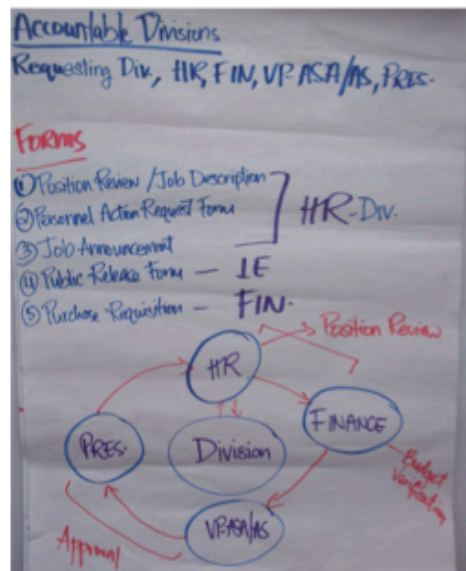 Accountable Divisions
Requesting Div., HR, FIN, VP-ASA/AS, PRES.
FORMS
① Position Review / Job Description
② Personnel Action Request Form
③ Job Announcement
HR-Div.
④ Public Release Form — IE
⑤ Purchase Requisition — FIN.
Position Review
HR
FINANCE
PRES.
Division
Budget
Verification
VP-ASA/AS
Approval